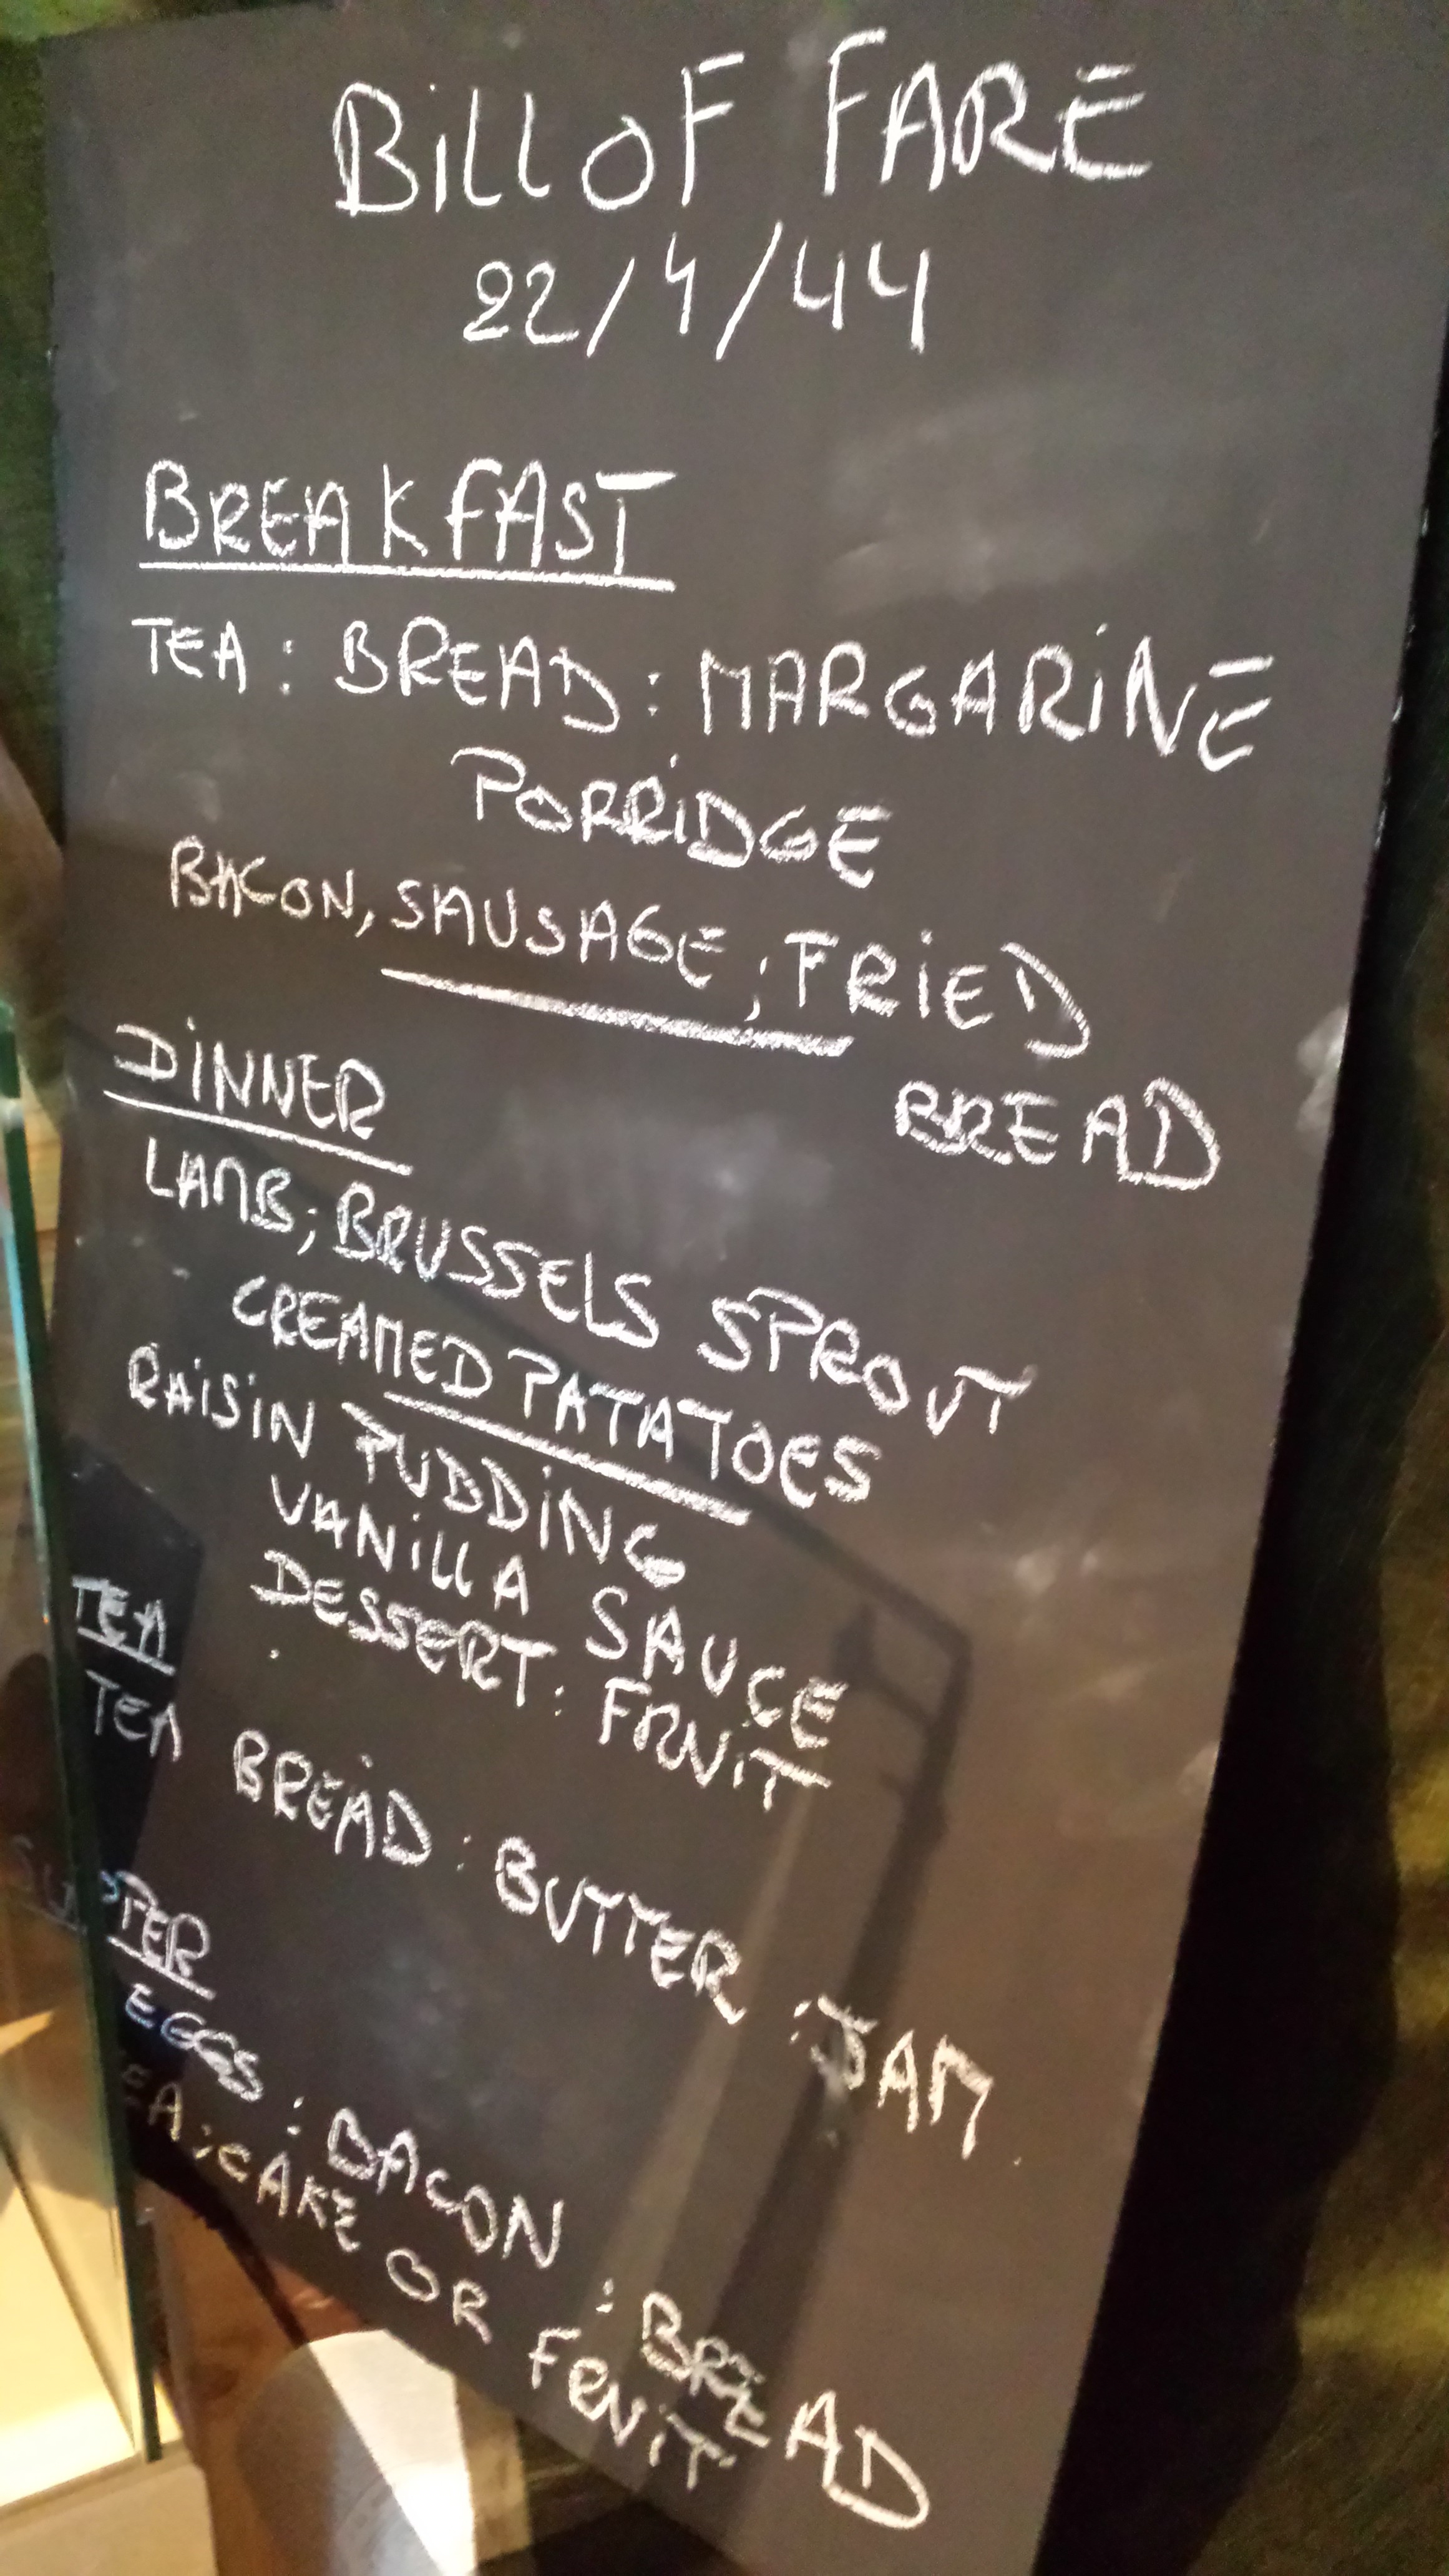 Bill OF FARE
22/4/44
BREAKFAST
TEA : BREAD : MARGARiNE
PORRiDGE
BACON, SAUSAGE ; FRiED
BREAD
DiNNER
LAMB ; BRUSSELS SPROUT
CREAMED PATATOES
RAiSiN PUDDiNG
VANillA SAUCE
DESSERT : FRUiT
TEA
TEA BREAD : BUTTER : JAM
PER
EGGS : BACON : BREAD
EA ; CAKE OR FRUiT